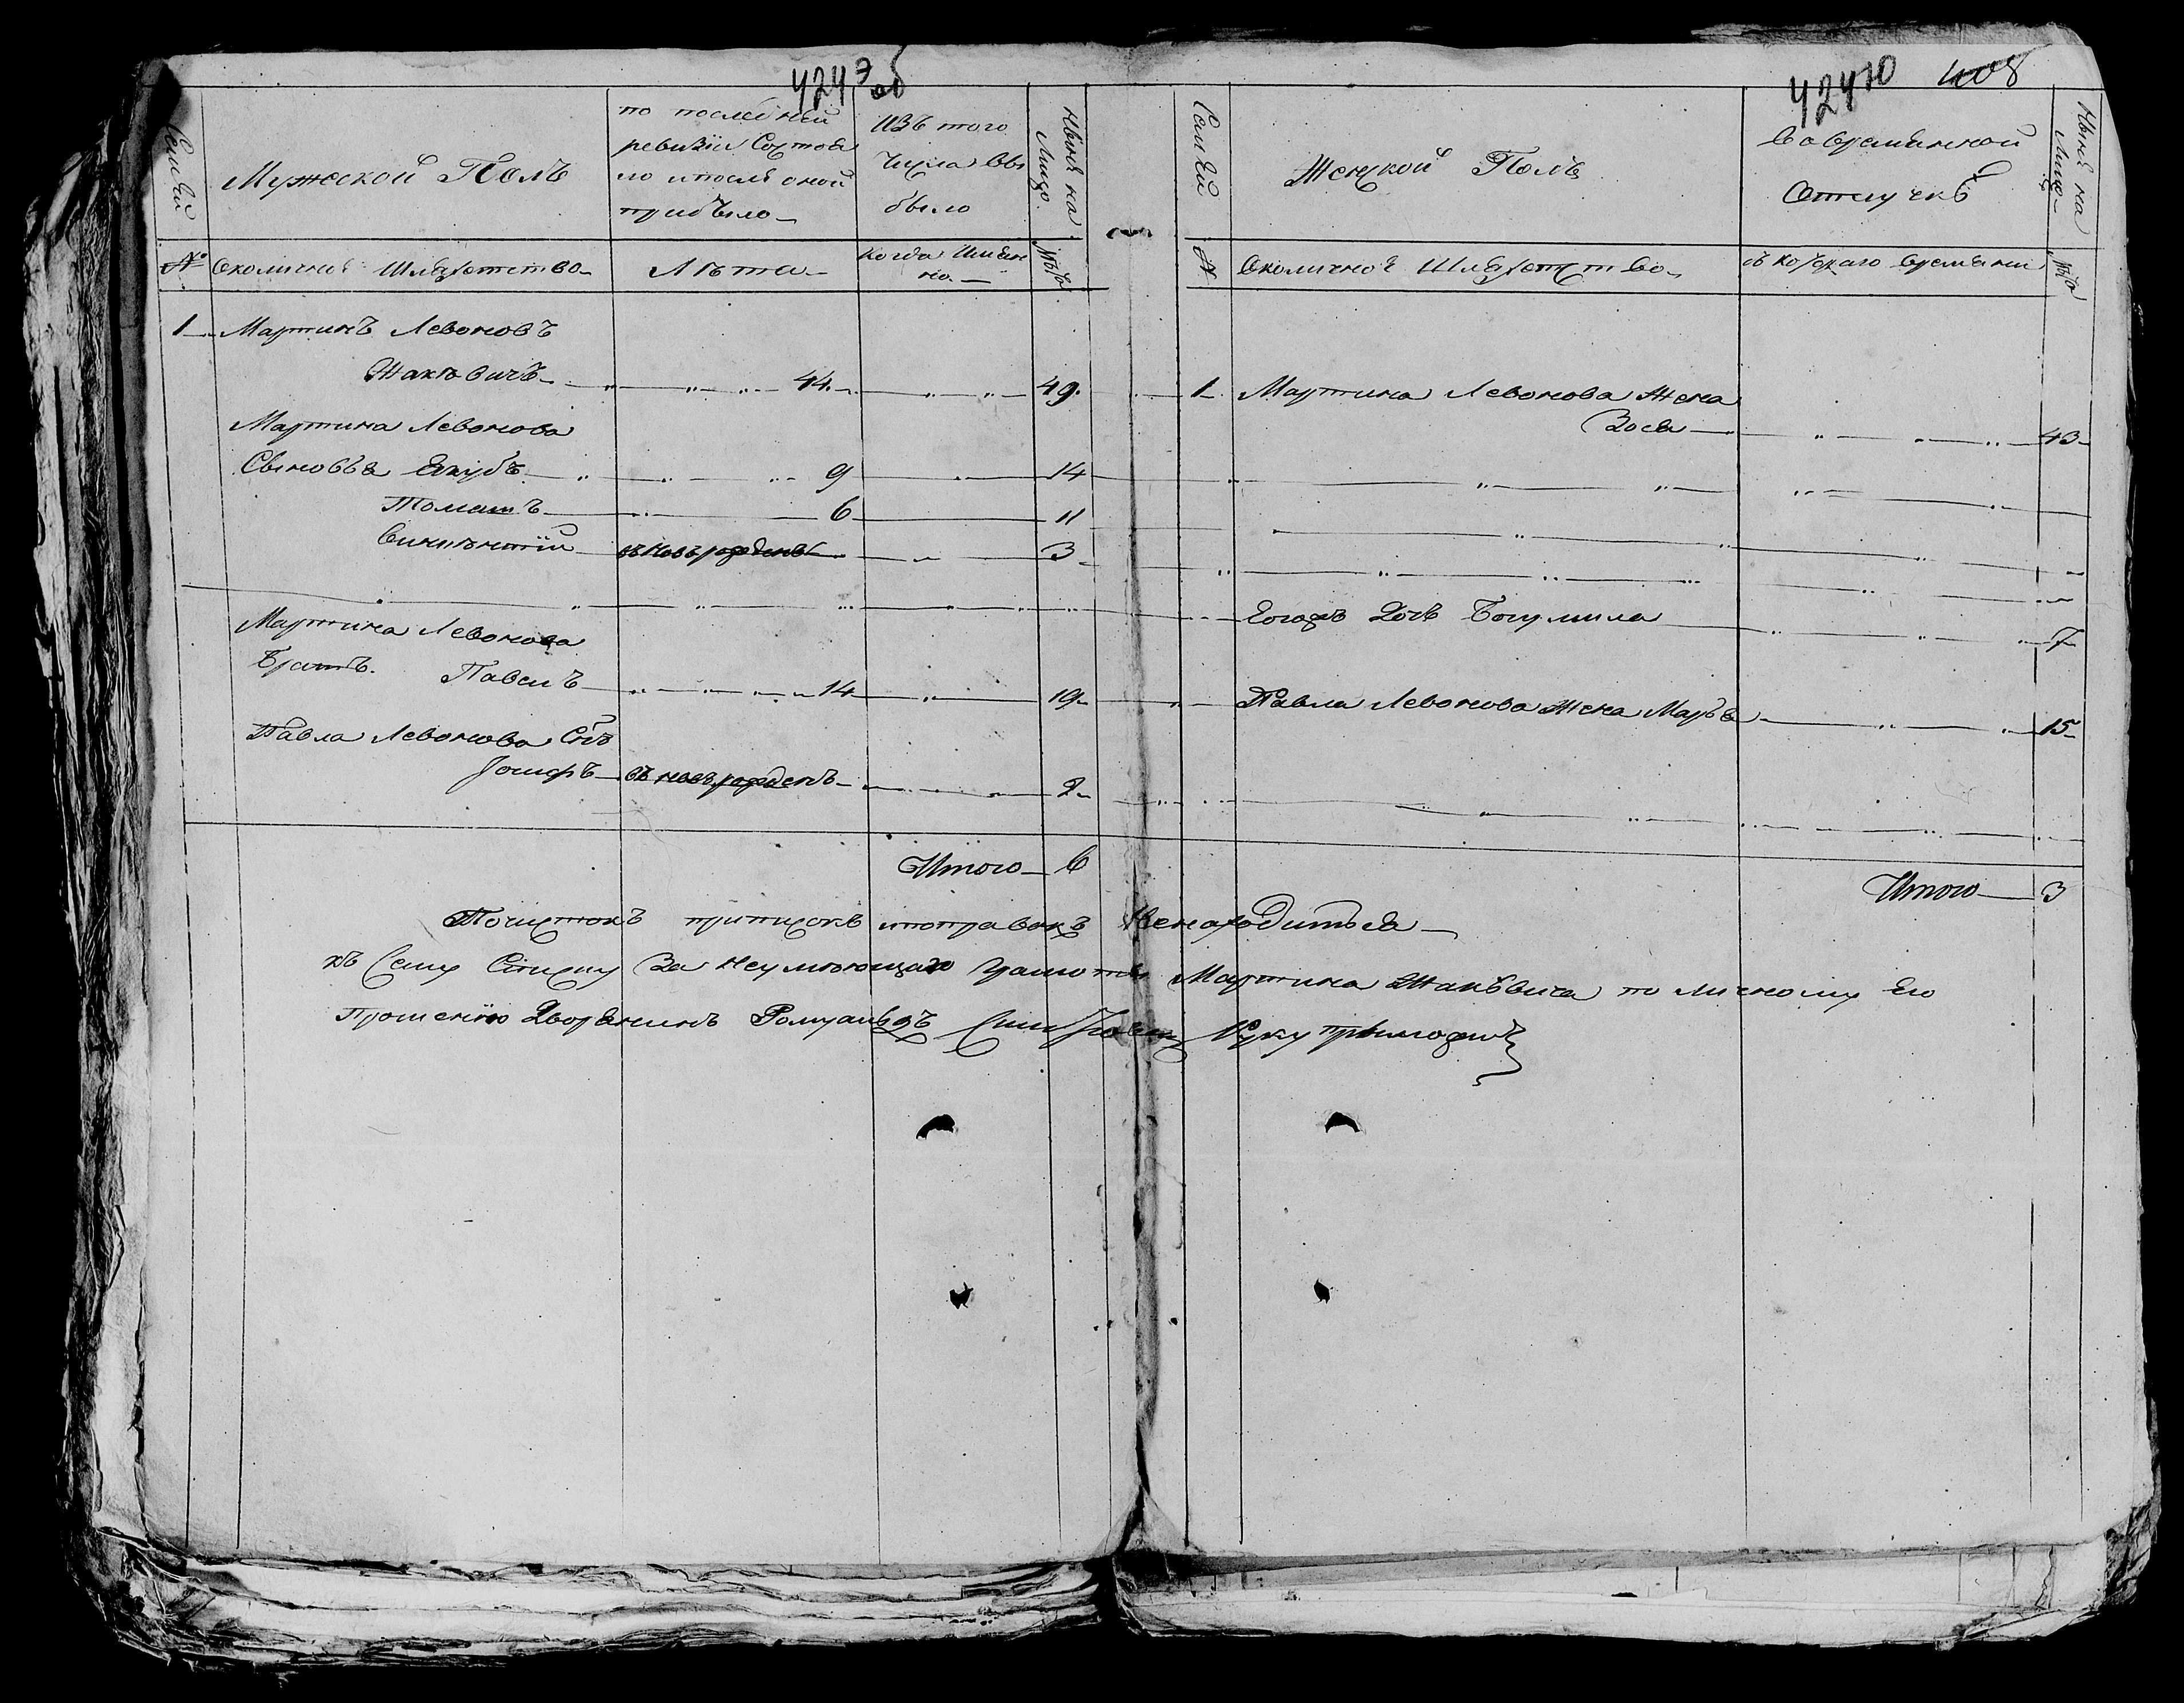 424 э об
Семьи
Мужеской Полъ
по последней
ревизіи Состоя
ло ипосля оной
прибыло
Изъ того
числа вы
было
Нынѣ на
Лицо
№
Околичное Шляхетство
Лѣта
когда имян
но
Лѣта
1 Мартинъ Левоновъ
Жаковичъ 44 49
Мартина Левонова
Сыновья Якубъ 9 14
Томашъ 6 11
Викентій въ новъ рожденъ 3
Мартина Левонова
Братъ Павелъ 14 19
Павла Левонова Сынъ
Іосифъ въ новъ рожденъ 2
Итого 6
424ю 408
Семьи
Женской Полъ
Во временной
Отлучкѣ
Нынѣ на
Лицо
№
Околичное Шляхетство
съ котораго времяни
Лѣта
1 Мартина Левонова Жена
Зося 43
Егожъ Дочь Богумила 7
Павла Левонова Жена Марья 15
Итого 3
Почистокъ приписокъ ипоправокъ Ненаходиться
къ Сему Списку За неумѣющаго грамоты Мартина Жаковича по личному Его
Прошенію Дворянинъ Ромуальдъ Руку приложилъ